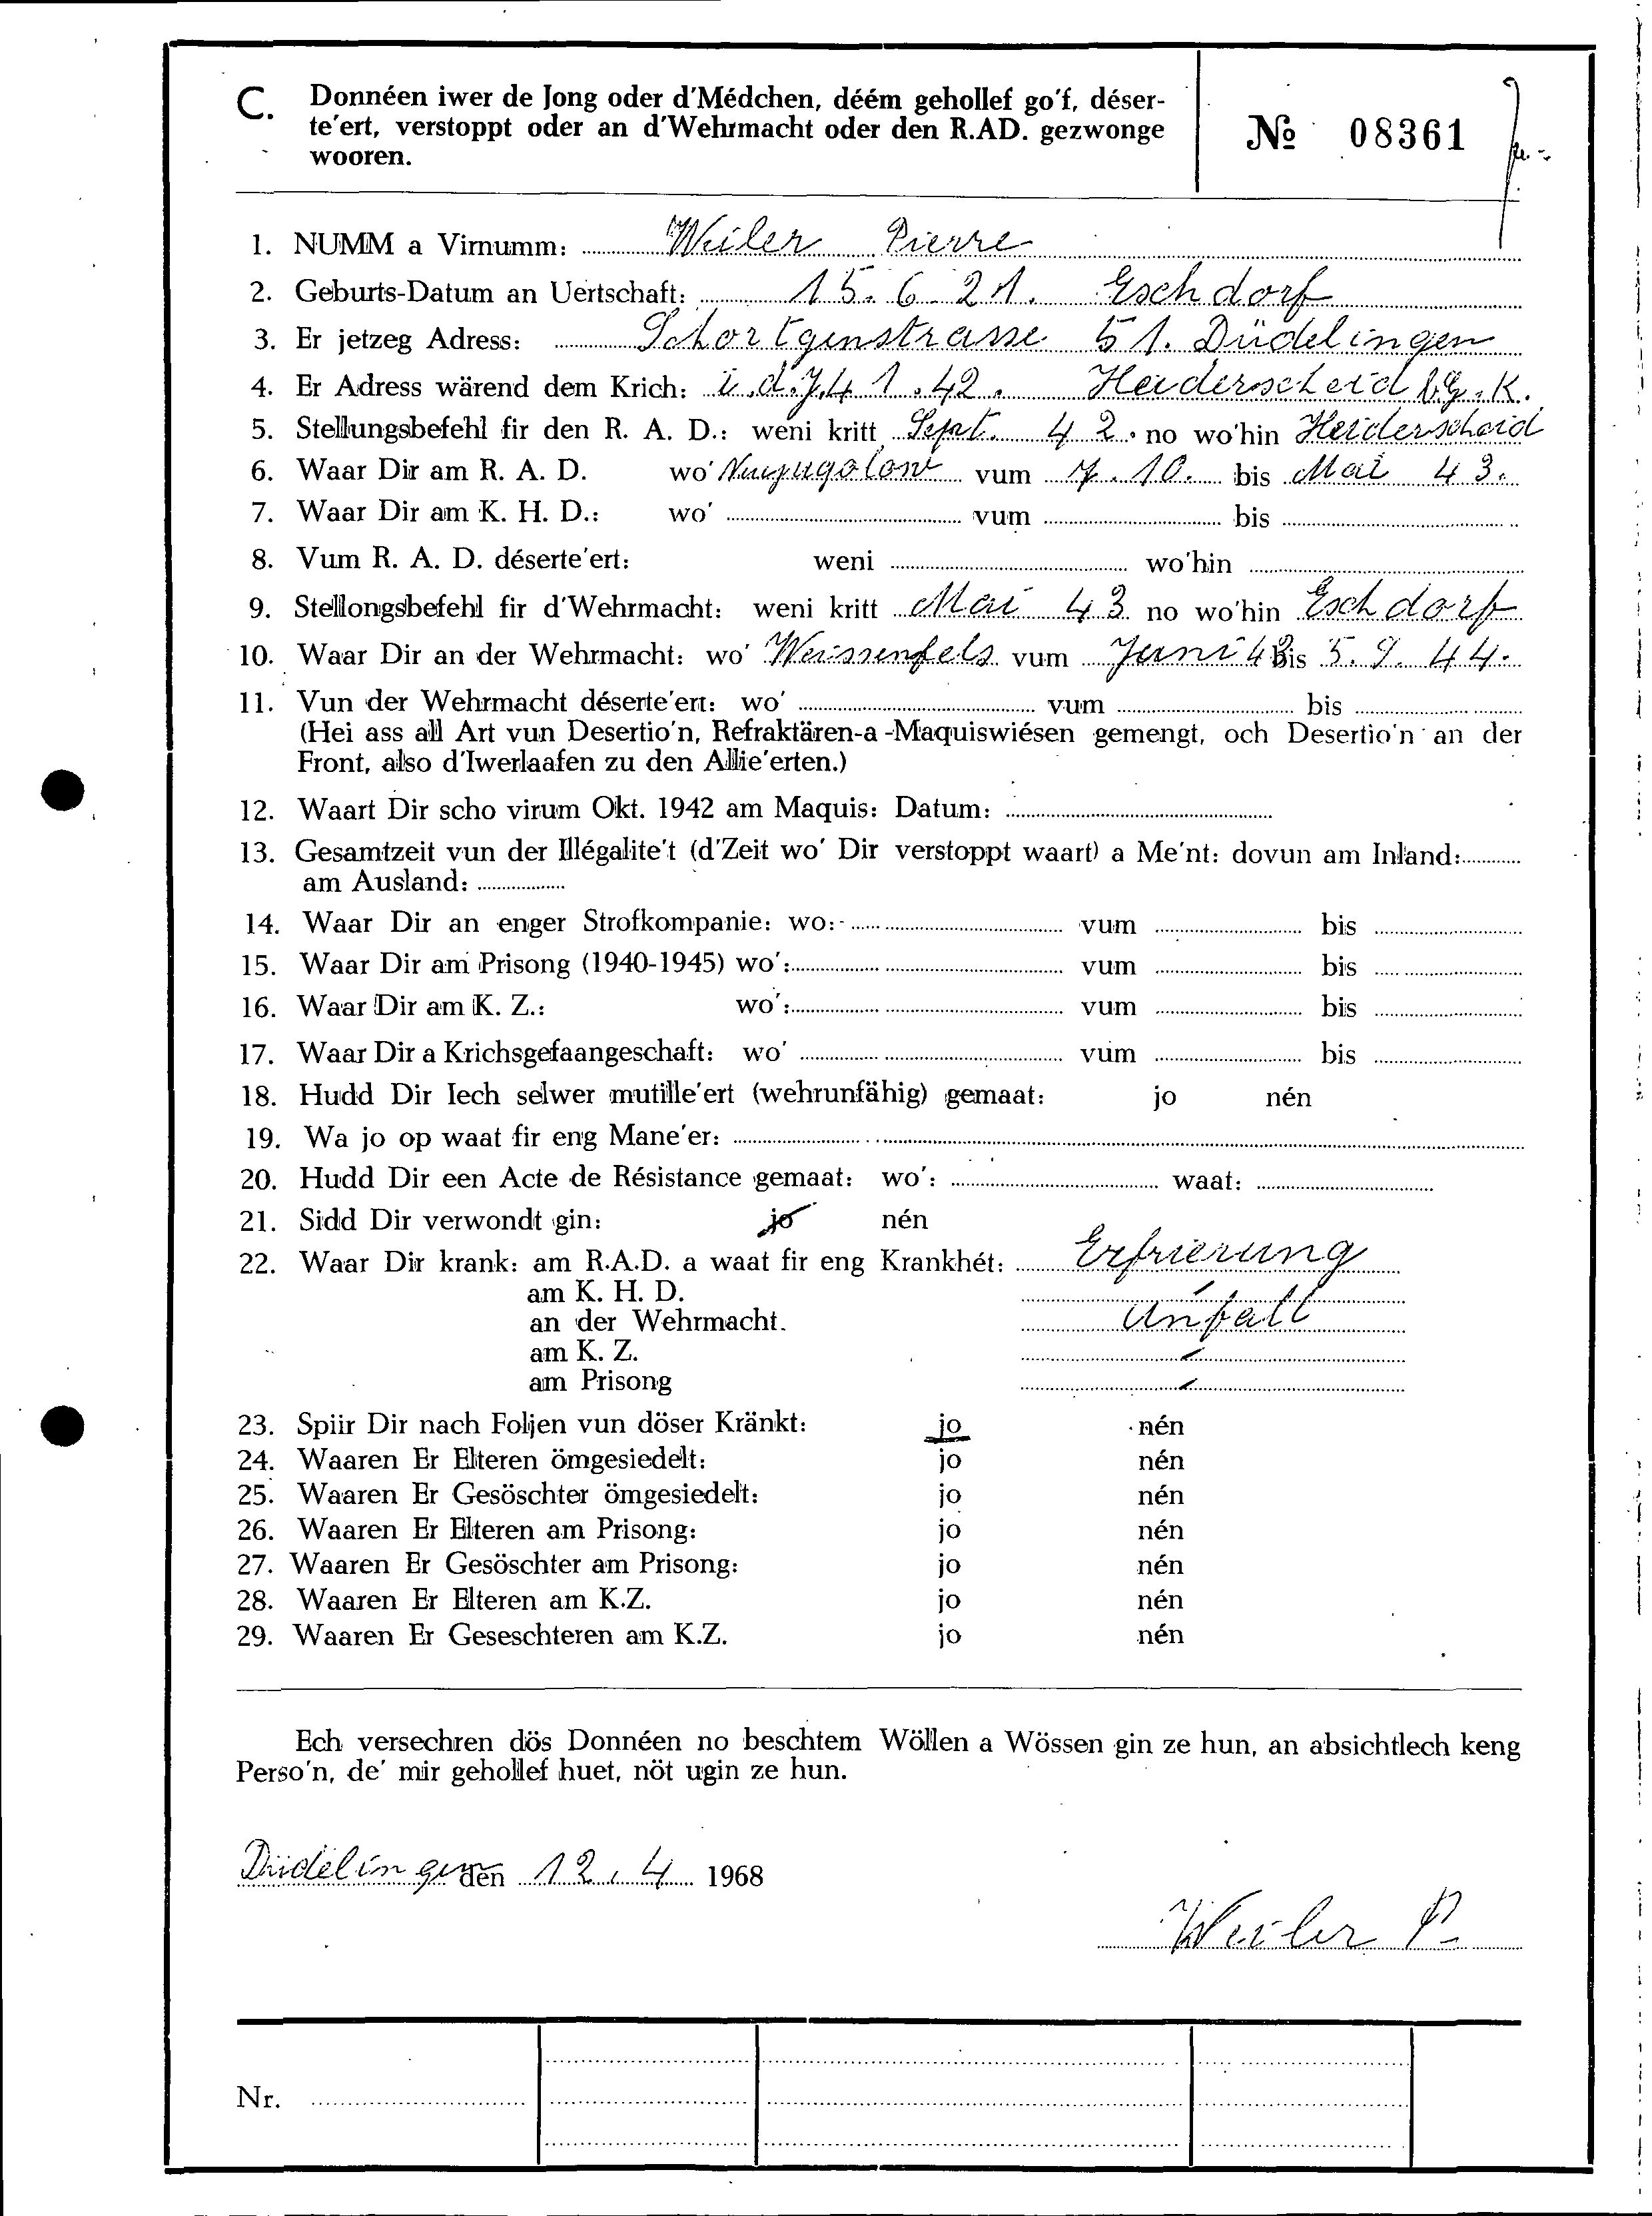 C. Donnéen iwer de Jong oder d'Médchen, déém gehollef go'f, déser-
te'ert, verstoppt oder an d'Wehrmacht oder den R.AD. gezwonge
wooren.
№ 08361
1. NUMM a Virnumm: Weiler Pierre
2. Geburts-Datum an Uertschaft: 15. 6. 21. Eschdorf
3. Er jetzeg Adress: Schortgenstrasse 51. Düdelingen
4. Er Adress wärend dem Krich: i.d.J. 41.42. Heiderscheid
5. Stellungsbefehl fir den R. A. D.: weni kritt Sept. 42. no wo'hin Heiderscheid
6. Waar Dir am R. A. D. wo' vum 7. 10. bis Mai 43.
7. Waar Dir am K. H. D.: wo' vum bis
8. Vum R. A. D. déserte'ert: weni wo'hin
9. Stellongsbefehl fir d'Wehrmacht: weni kritt Mai 43 no wo'hin Eschdorf
10. Waar Dir an der Wehrmacht: wo' Weissenfels vum Juni 43 bis 5. 9. 44.
11. Vun der Wehrmacht déserte'ert: wo' vum bis
(Hei ass all Art vun Desertio'n, Refraktären-a-Maquiswiésen gemengt, och Desertio'n an der
Front, also d'Iwerlaafen zu den Allie'erten.)
12. Waart Dir scho virum Okt. 1942 am Maquis: Datum:
13. Gesamtzeit vun der Illégalite't (d'Zeit wo' Dir verstoppt waart) a Me'nt: dovun am Inland:
am Ausland:
14. Waar Dir an enger Strofkompanie: wo: vum bis
15. Waar Dir am Prisong (1940-1945) wo': vum bis
16. Waar Dir am K. Z.: wo': vum bis
17. Waar Dir a Krichsgefaangeschaft: wo' vum bis
18. Hudd Dir Iech selwer mutille'ert (wehrunfähig) gemaat: jo nén
19. Wa jo op waat fir eng Mane'er:
20. Hudd Dir een Acte de Résistance gemaat: wo': waat:
21. Sidd Dir verwondt gin: jo nén
22. Waar Dir krank: am R.A.D. a waat fir eng Krankhét: Erfrierung
am K. H. D.
an der Wehrmacht. Unfall
am K. Z.
am Prisong
23. Spiir Dir nach Foljen vun döser Kränkt: jo nén
24. Waaren Er Elteren ömgesiedelt: jo nén
25. Waaren Er Gesöschter ömgesiedelt: jo nén
26. Waaren Er Elteren am Prisong: jo nén
27. Waaren Er Gesöschter am Prisong: jo nén
28. Waaren Er Elteren am K.Z. jo nén
29. Waaren Er Geseschteren am K.Z. jo nén
Ech versechren dös Donnéen no beschtem Wöllen a Wössen gin ze hun, an absichtlech keng
Perso'n, de' mir gehollef huet, nöt ugin ze hun.
Düdelingen den 12. 4 1968
Weiler P.
Nr.